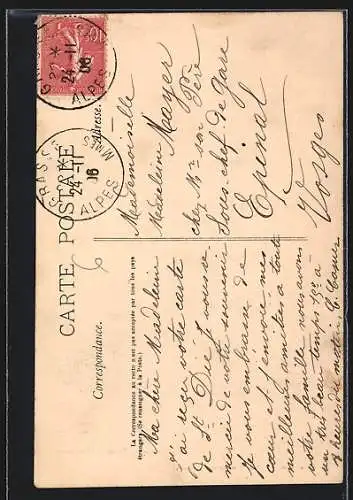 CARTE POSTALE
Correspondance.
Adresse.
La Correspondance au recto n'est pas acceptée par tous les pays
étrangers. (Se renseigner à la Poste.)
GRASSE
22 *
24 - 11
06
ALPES
GRASSE
24 - 11
06
ALPES MMES
10
Mademoiselle
Madeleine Mayer
chez Mr son Père
Sous-chef de gare
Epinal
Vosges
Ma chère Madeleine
J'ai reçu votre carte
de St Dié, je vous re-
mercie de votre souvenir
Je vous embrasse de
cœur et j'envoie mes
meilleurs amitiés à toute
votre famille nous avons
un très beau temps 19° à
heures du matin, E.